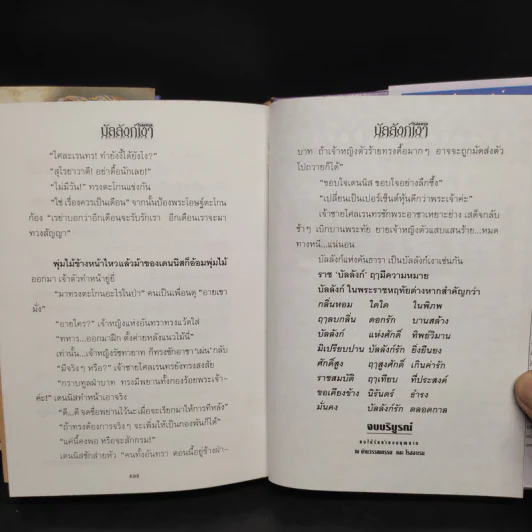 บัลลังก์เงา
"ไศละเรนทร! ทำยังงี้ได้ยังไง?"
"สุไรยาวาตี! อย่าดื้อนักเลย!"
"ไม่มีวัน!" ทรงตะโกนแข่งกัน
"ใช่ เรื่องควรเป็นเดือน" จากนั้นป้องพระโอษฐ์ตะโกน
ก้อง "เรย่าบอกว่าอีกเดือนจะรับรักเรา อีกเดือนเราจะมา
ทวงสัญญา"
พุ่มไม้ข้างหน้าไหวแล้วม้าของเดนนิสก็อ้อมพุ่มไม้
ออกมา เจ้าตัวทำหน้ายู่ยี่
"มาทรงตะโกนอะไรในป่า" คนเป็นเพื่อนดุ "อายเขา
มั่ง"
"อายใคร?" เจ้าหญิงแห่งอันทราทรงแว้ดใส่
"ทหาร...ออกมาฝึก ตั้งค่ายหลังแนวไม้นี่"
เท่านั้น...เจ้าหญิงรัชทายาท ก็ทรงชักอาชา 'เผ่น' กลับ
"มีจริงๆ หรือ?" เจ้าชายไศลเรนทรยังทรงสงสัย
"กราบทูลฝ่าบาท ทรงมีพยานทั้งกองร้อยพระเจ้า-
ค่ะ!" เดนนิสทำหน้าเอาจริง
"ดี...ดี จดชื่อพยานไว้นะเผื่อจะเรียกมาให้การทีหลัง"
"ถ้าทรงต้องการจริงๆ จะเพิ่มให้เป็นกองพันก็ได้"
"แค่นี้คงพอ หรือจะสักกรม!"
เดนนิสส่ายหัว "คนทั้งอันทรา ตอนนี้อยู่ข้างฝ่า-
บัลลังก์เงา
บาท ถ้าเจ้าหญิงตัวร้ายทรงดื้อมากๆ อาจจะถูกมัดส่งตัว
ไปถวายก็ได้"
"ขอบใจเดนนิส ขอบใจอย่างลึกซึ้ง"
"เปลี่ยนเป็นเปอร์เซ็นต์หุ้นดีกว่าพระเจ้าค่ะ"
เจ้าชายไศลเรนทรชักพระอาชาเหยาะย่าง เสด็จกลับ
ช้าๆ เบิกบานพระทัย ยายเจ้าหญิงตัวแสบแสนร้าย...หมด
ทางหนี...แน่นอน
บัลลังก์แห่งคันธารา เป็นบัลลังก์เงาเช่นกัน
ราช 'บัลลังก์' ฤๅมีความหมาย
บัลลังก์ ในพระราชหฤทัยต่างหากสำคัญกว่า
กลิ่นหอม ใดใด ในพิภพ
ฤๅลบกลิ่น ดอกรัก บานสล้าง
บัลลังก์ แห่งศักดิ์ ทิพย์วิมาน
มิเปรียบปาน บัลลังก์รัก ยิ่งยืนยง
ศักดิ์สูง ฤๅสูงศักดิ์ เกินค่ารัก
ราชสมบัติ ฤๅเทียบ ที่ประสงค์
ขอเคียงข้าง นิรันดร์ ธำรง
มั่นคง บัลลังก์รัก ตลอดกาล
จบบริบูรณ์